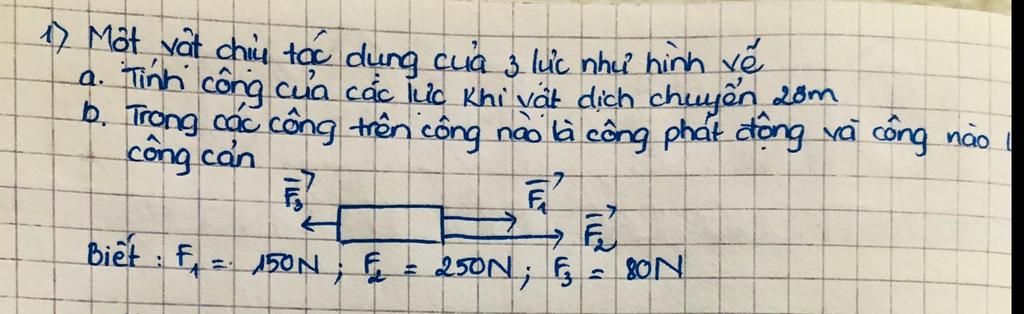 1) Một vật chịu tác dụng của 3 lực như hình vẽ
a. Tính công của các lực khi vật dịch chuyển 20m
b. Trong các công trên công nào là công phát động và công nào
công cản
F₃ F₁
F₂
Biết : F₁ = 150N ; F₂ = 250N ; F₃ = 80N